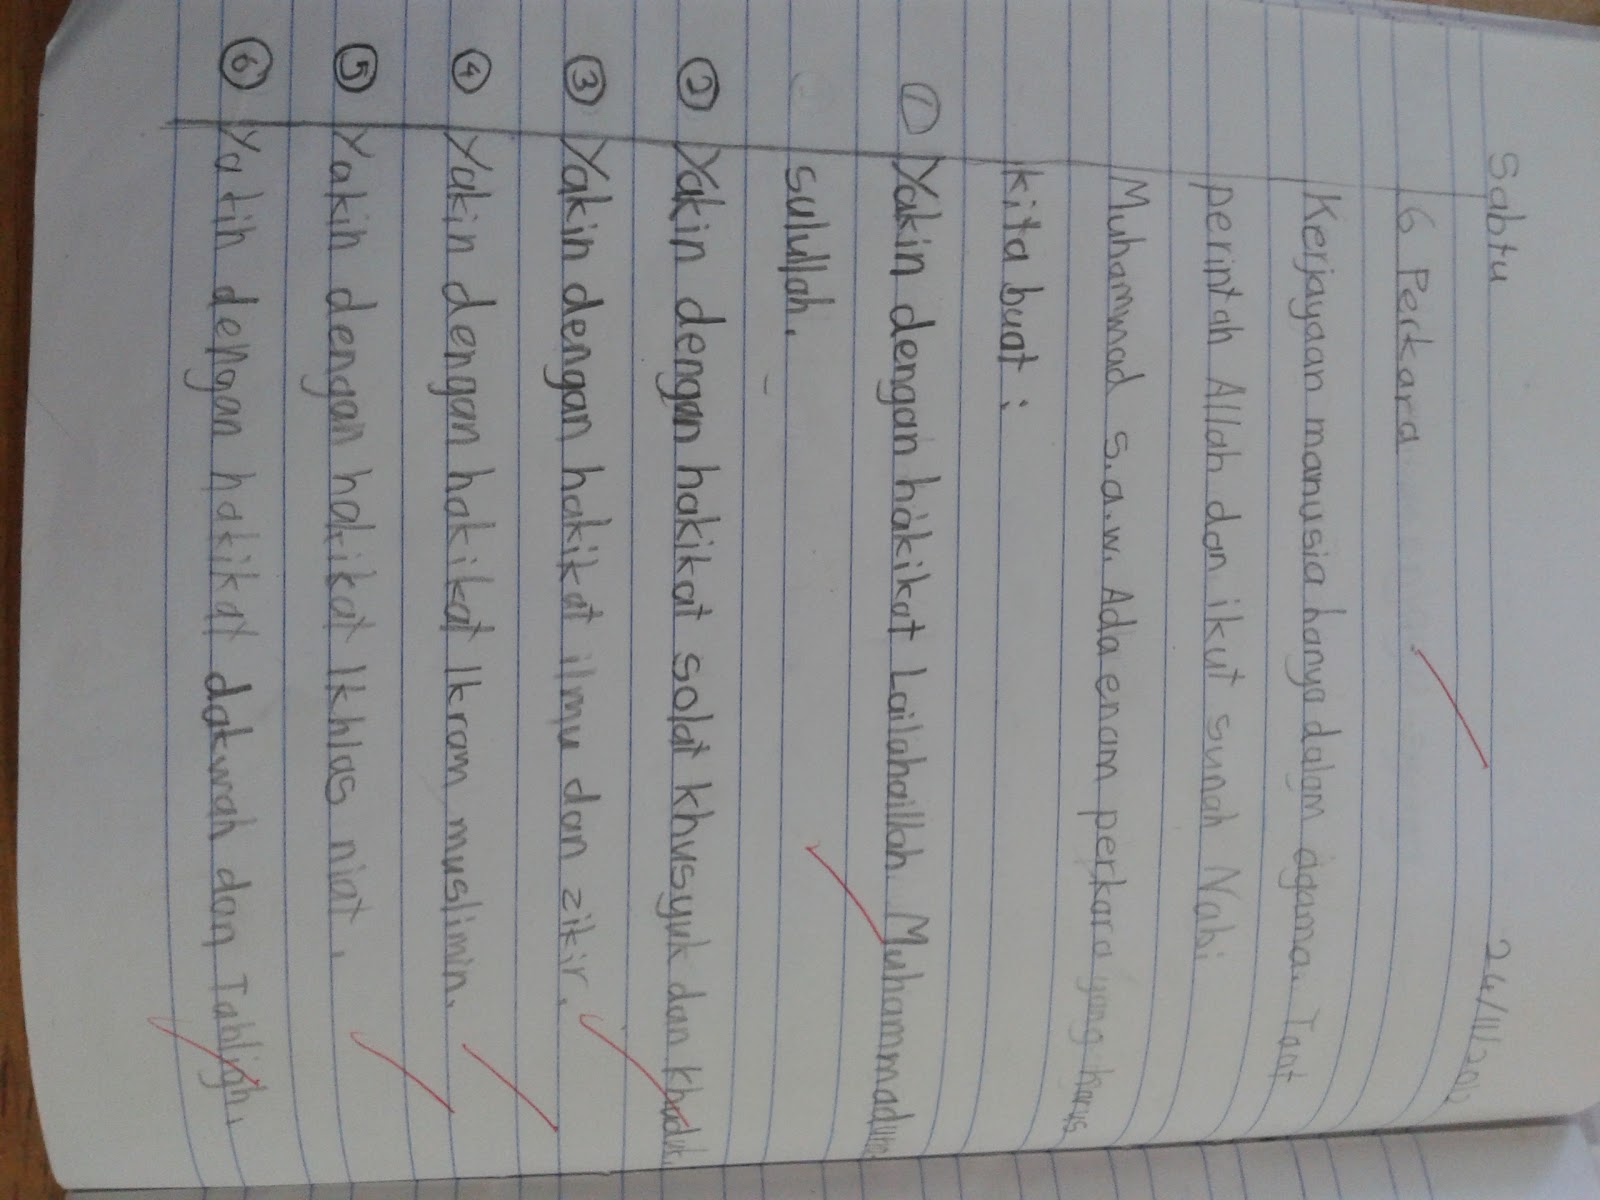 Sabtu 24/11/2012
6 Perkara
Kerjayaan manusia hanya dalam agama. Taat
perintah Allah dan ikut sunah Nabi
Muhammad s.a.w. Ada enam perkara yang harus
kita buat :
① Yakin dengan hakikat Lailahaillah. Muhammadum
sulullah.
② Yakin dengan hakikat solat khusyuk dan khuduk.
③ Yakin dengan hakikat ilmu dan zikir.
④ Yakin dengan hakikat Ikram muslimin.
⑤ Yakin dengan hakikat Ikhlas niat.
⑥ Yakin dengan hakikat dakwah dan Tabligh.